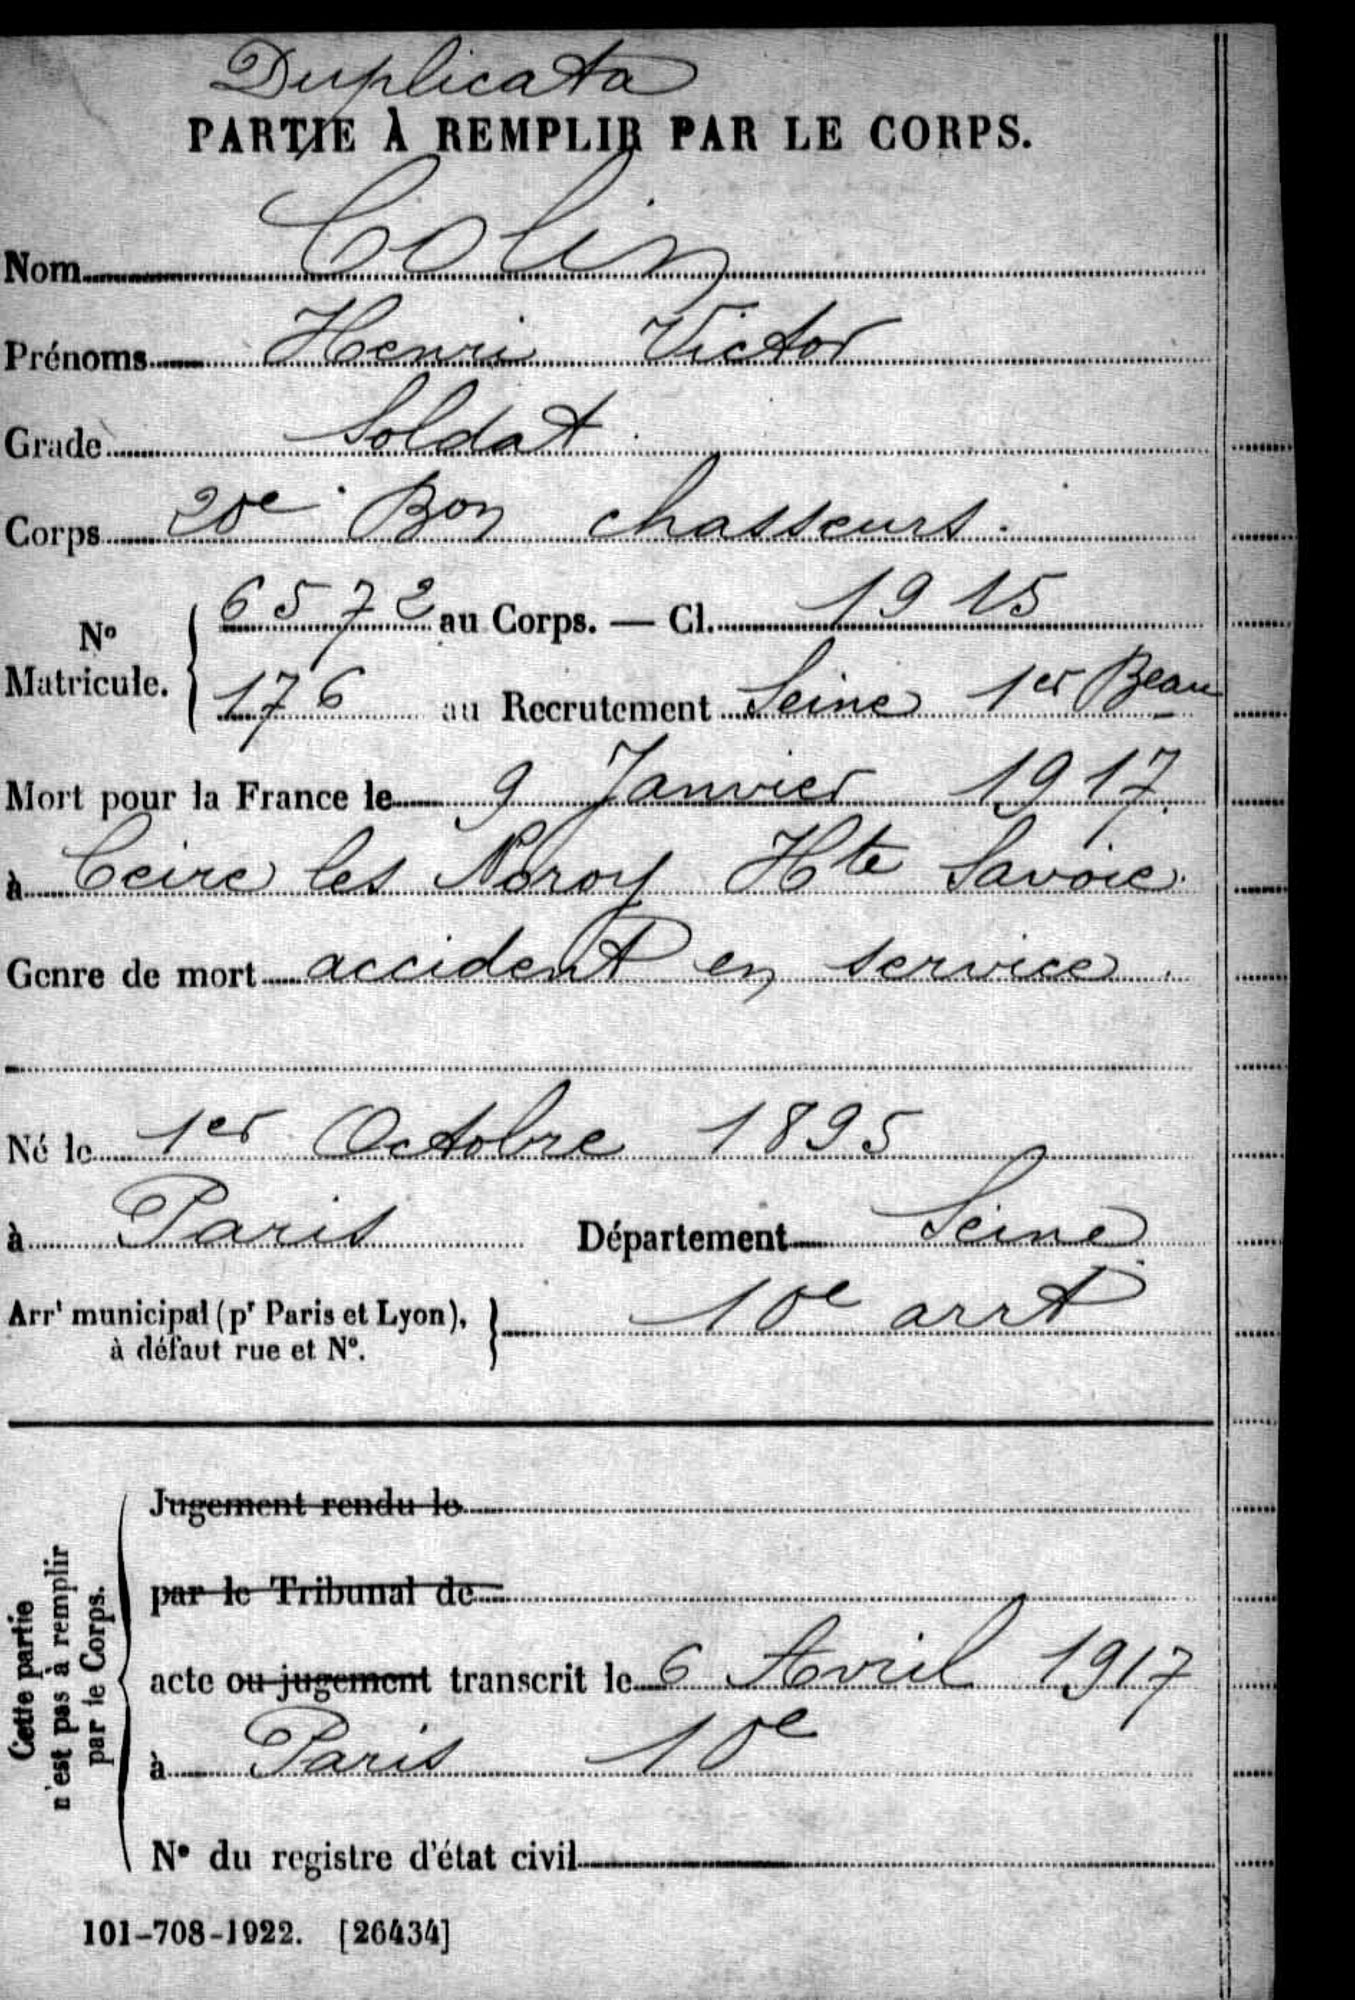 Duplicata
PARTIE À REMPLIR PAR LE CORPS.
Nom Colin
Prénoms Henri Victor
Grade Soldat
Corps 20e Bon chasseurs.
No Matricule. { 6572 au Corps. — Cl. 1915
176 au Recrutement Seine 1er Beau
Mort pour la France le 9 Janvier 1917.
à Ceire les Noroy Hte Savoie.
Genre de mort accident en service.
Né le 1er Octobre 1895
à Paris Département Seine
Arrt municipal (pr Paris et Lyon), à défaut rue et N°. } 10e arrt
Cette partie n'est pas à remplir par le Corps.
Jugement rendu le
par le Tribunal de
acte ou jugement transcrit le 6 Avril 1917
à Paris 10e
N° du registre d'état civil
101-708-1922. [26434]